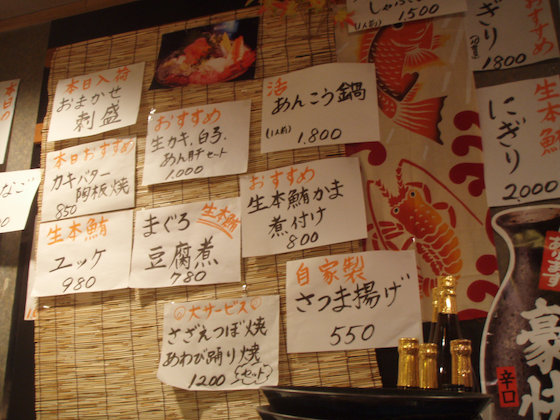 しゃぶ
(1人前) 1500
おすすめ
にぎり
1800
本日の
本日入荷
おまかせ
刺盛
おすすめ
生カキ、白子、
あん肝セット
1,000
活
あんこう鍋
(1人前)
1,800
生本鮪
にぎり
2,000
本日おすすめ
カキバター
陶板焼
850
おすすめ
生本鮪かま
煮付け
800
生本鮪
ユッケ
980
生本鮪
まぐろ
豆腐煮
780
自家製
さつま揚げ
550
◎大サービス◎
さざえつぼ焼
あわび踊り焼
1200 セット
辛口